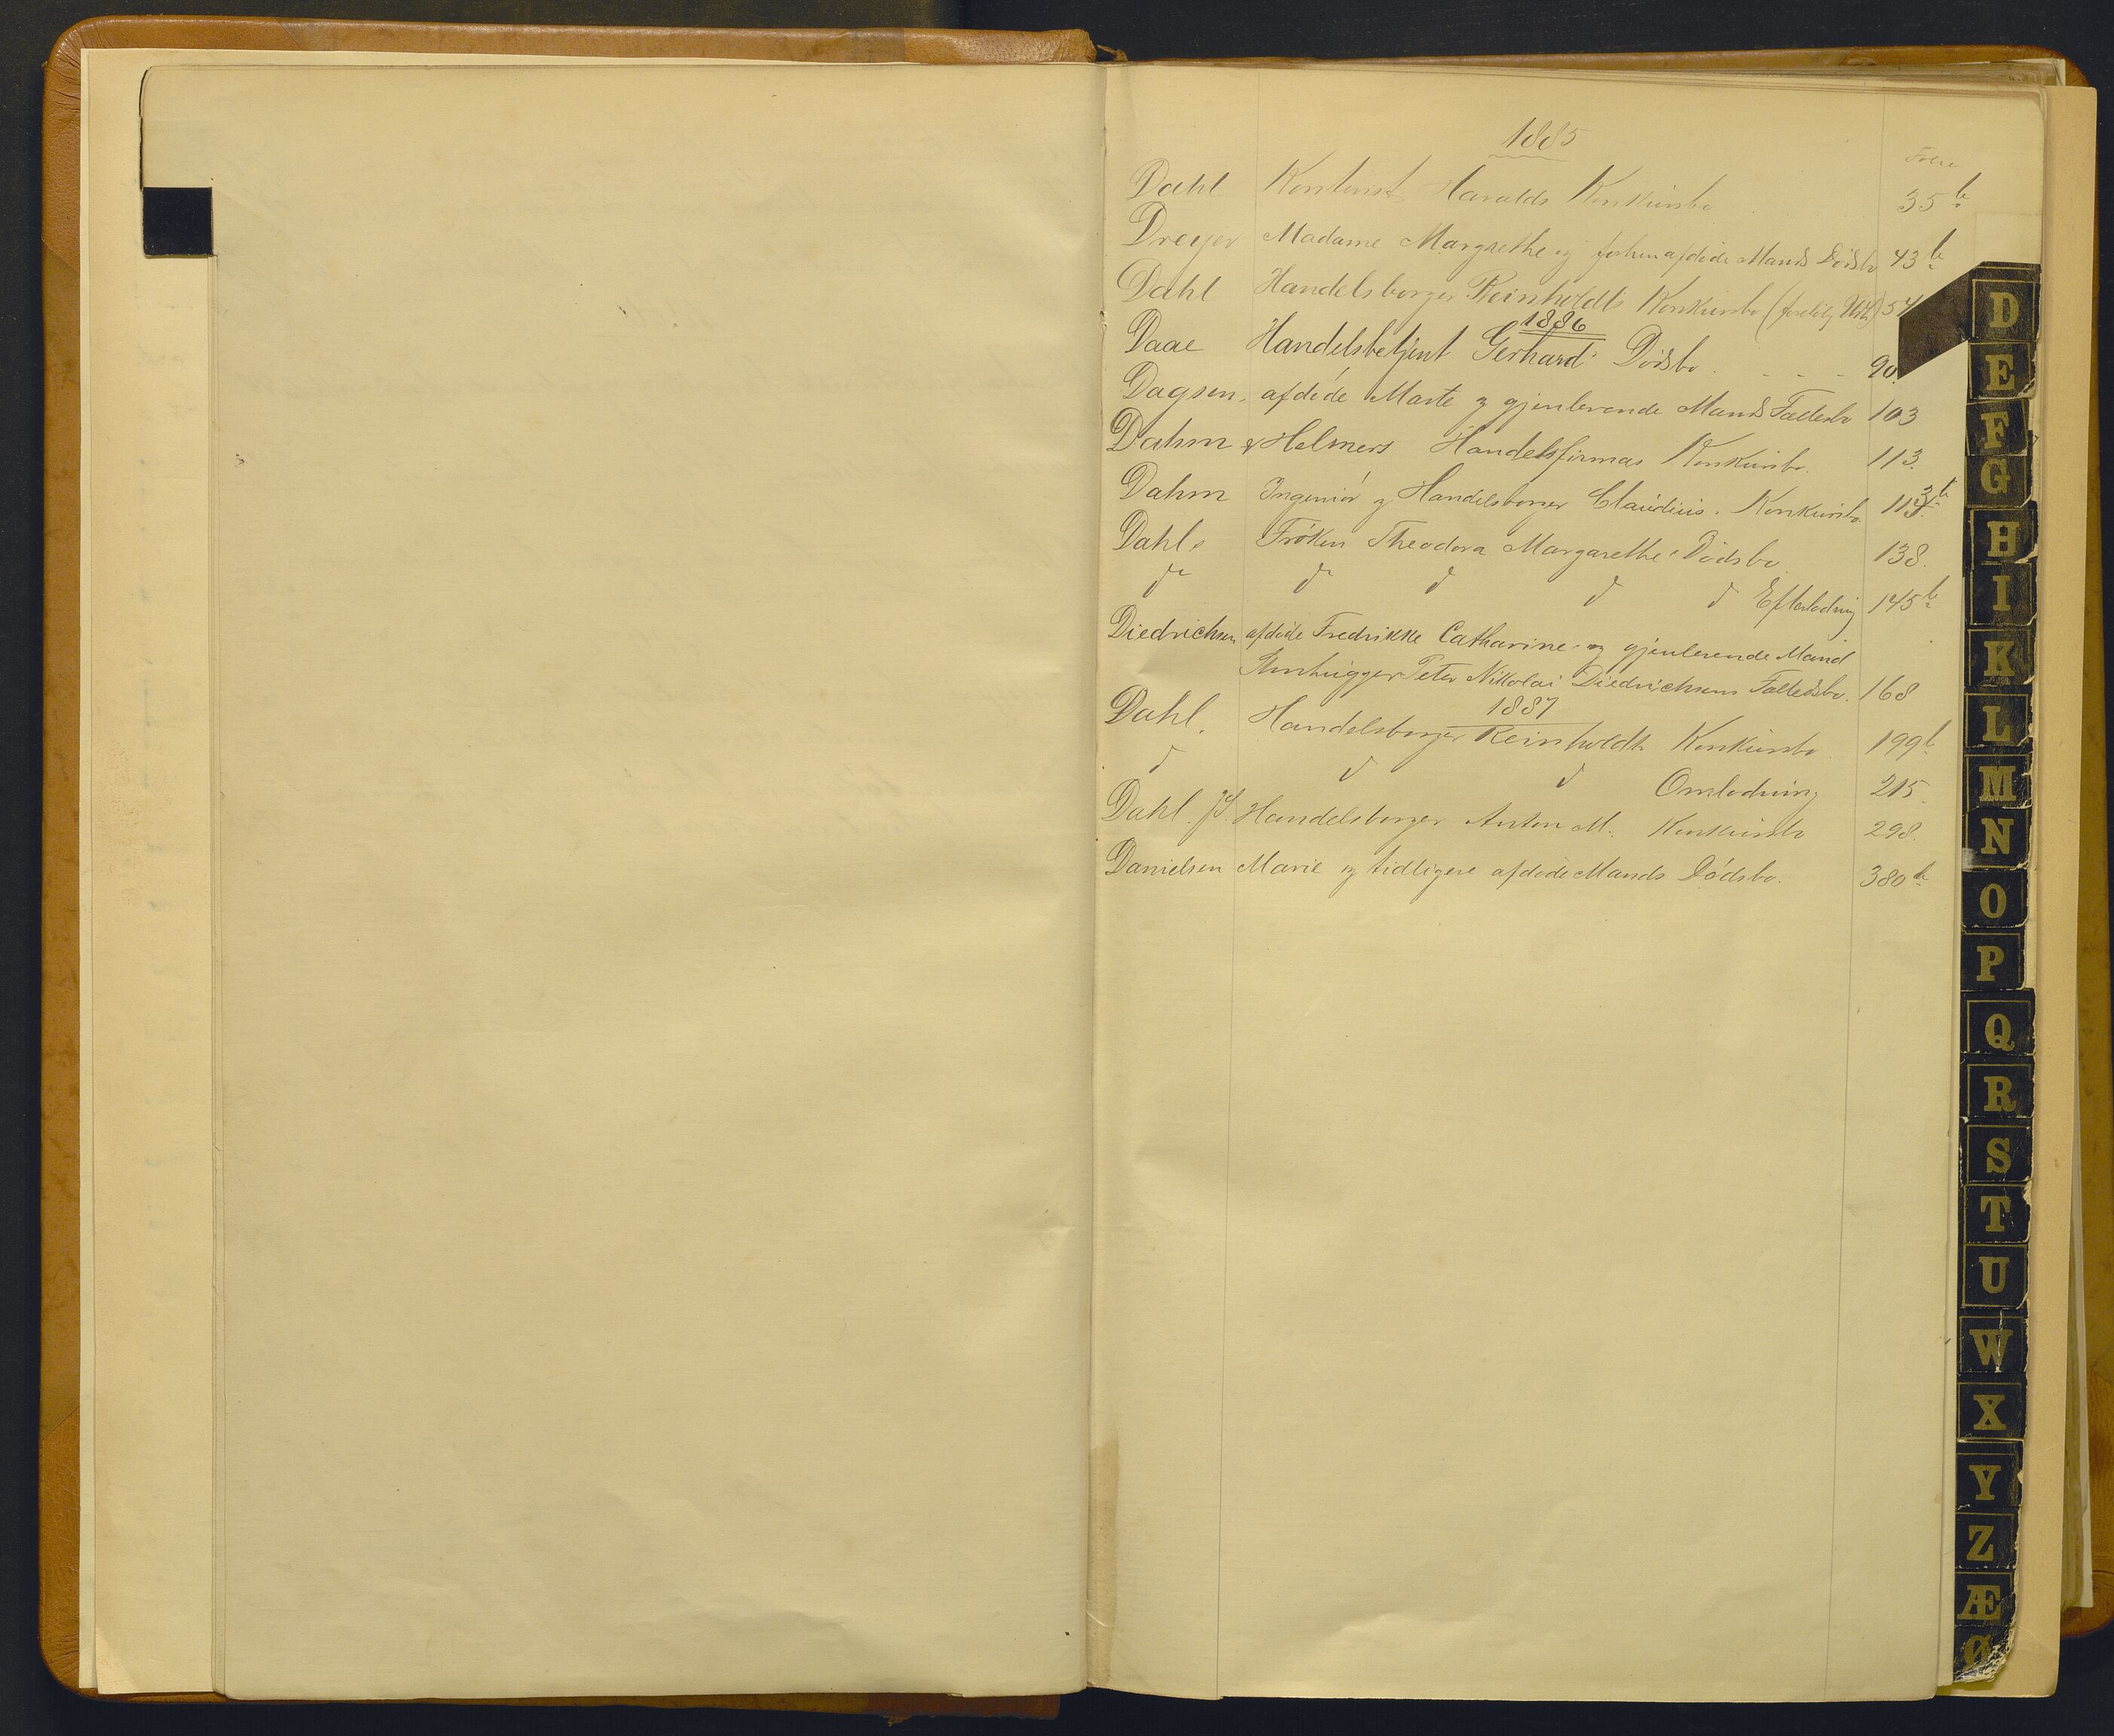 1885
Folio
Dahl Kontorist Haralds Konkursbo 35 b.
Dreyer Madame Margrethe og forhen afdøde Mands Dødsbo 43 b.
Dahl Handelsborger Reinholdts Konkursbo (foreløbig Udl) 54
1886
Daae Handelsbetjent Gerhards Dødsbo . - - - 90.
Dagsen, afdøde Marte og gjenlevende Mands Fællesbo 103
Dahm & Helmers Handelsfirmas Konkursbo. 113.
Dahm Ingeniør og Handelsborger Claudius. Konkursbo. 113 b.
Dahl, Frøken Theodora Margarethe's Dødsbo 138.
do do d d d Efterlodning 145 b.
Diedrichsen, afdøde Fredrikke Catharine og gjenlevende Mand
Stenhugger Peter Nikolai Diedrichsens Fællesbo. 168
1887
Dahl, Handelsborger Reinholdts Konkursbo 199 b
d d d Omlodning 215.
Dahl. Handelsborger Anton M. Konkursbo 298.
Danielsen Marie og tidligere afdøde Mands Dødsbo. 380 b.
D
E
F
G
H
I
K
L
M
N
O
P
Q
R
S
T
U
W
X
Y
Z
Æ
Ø